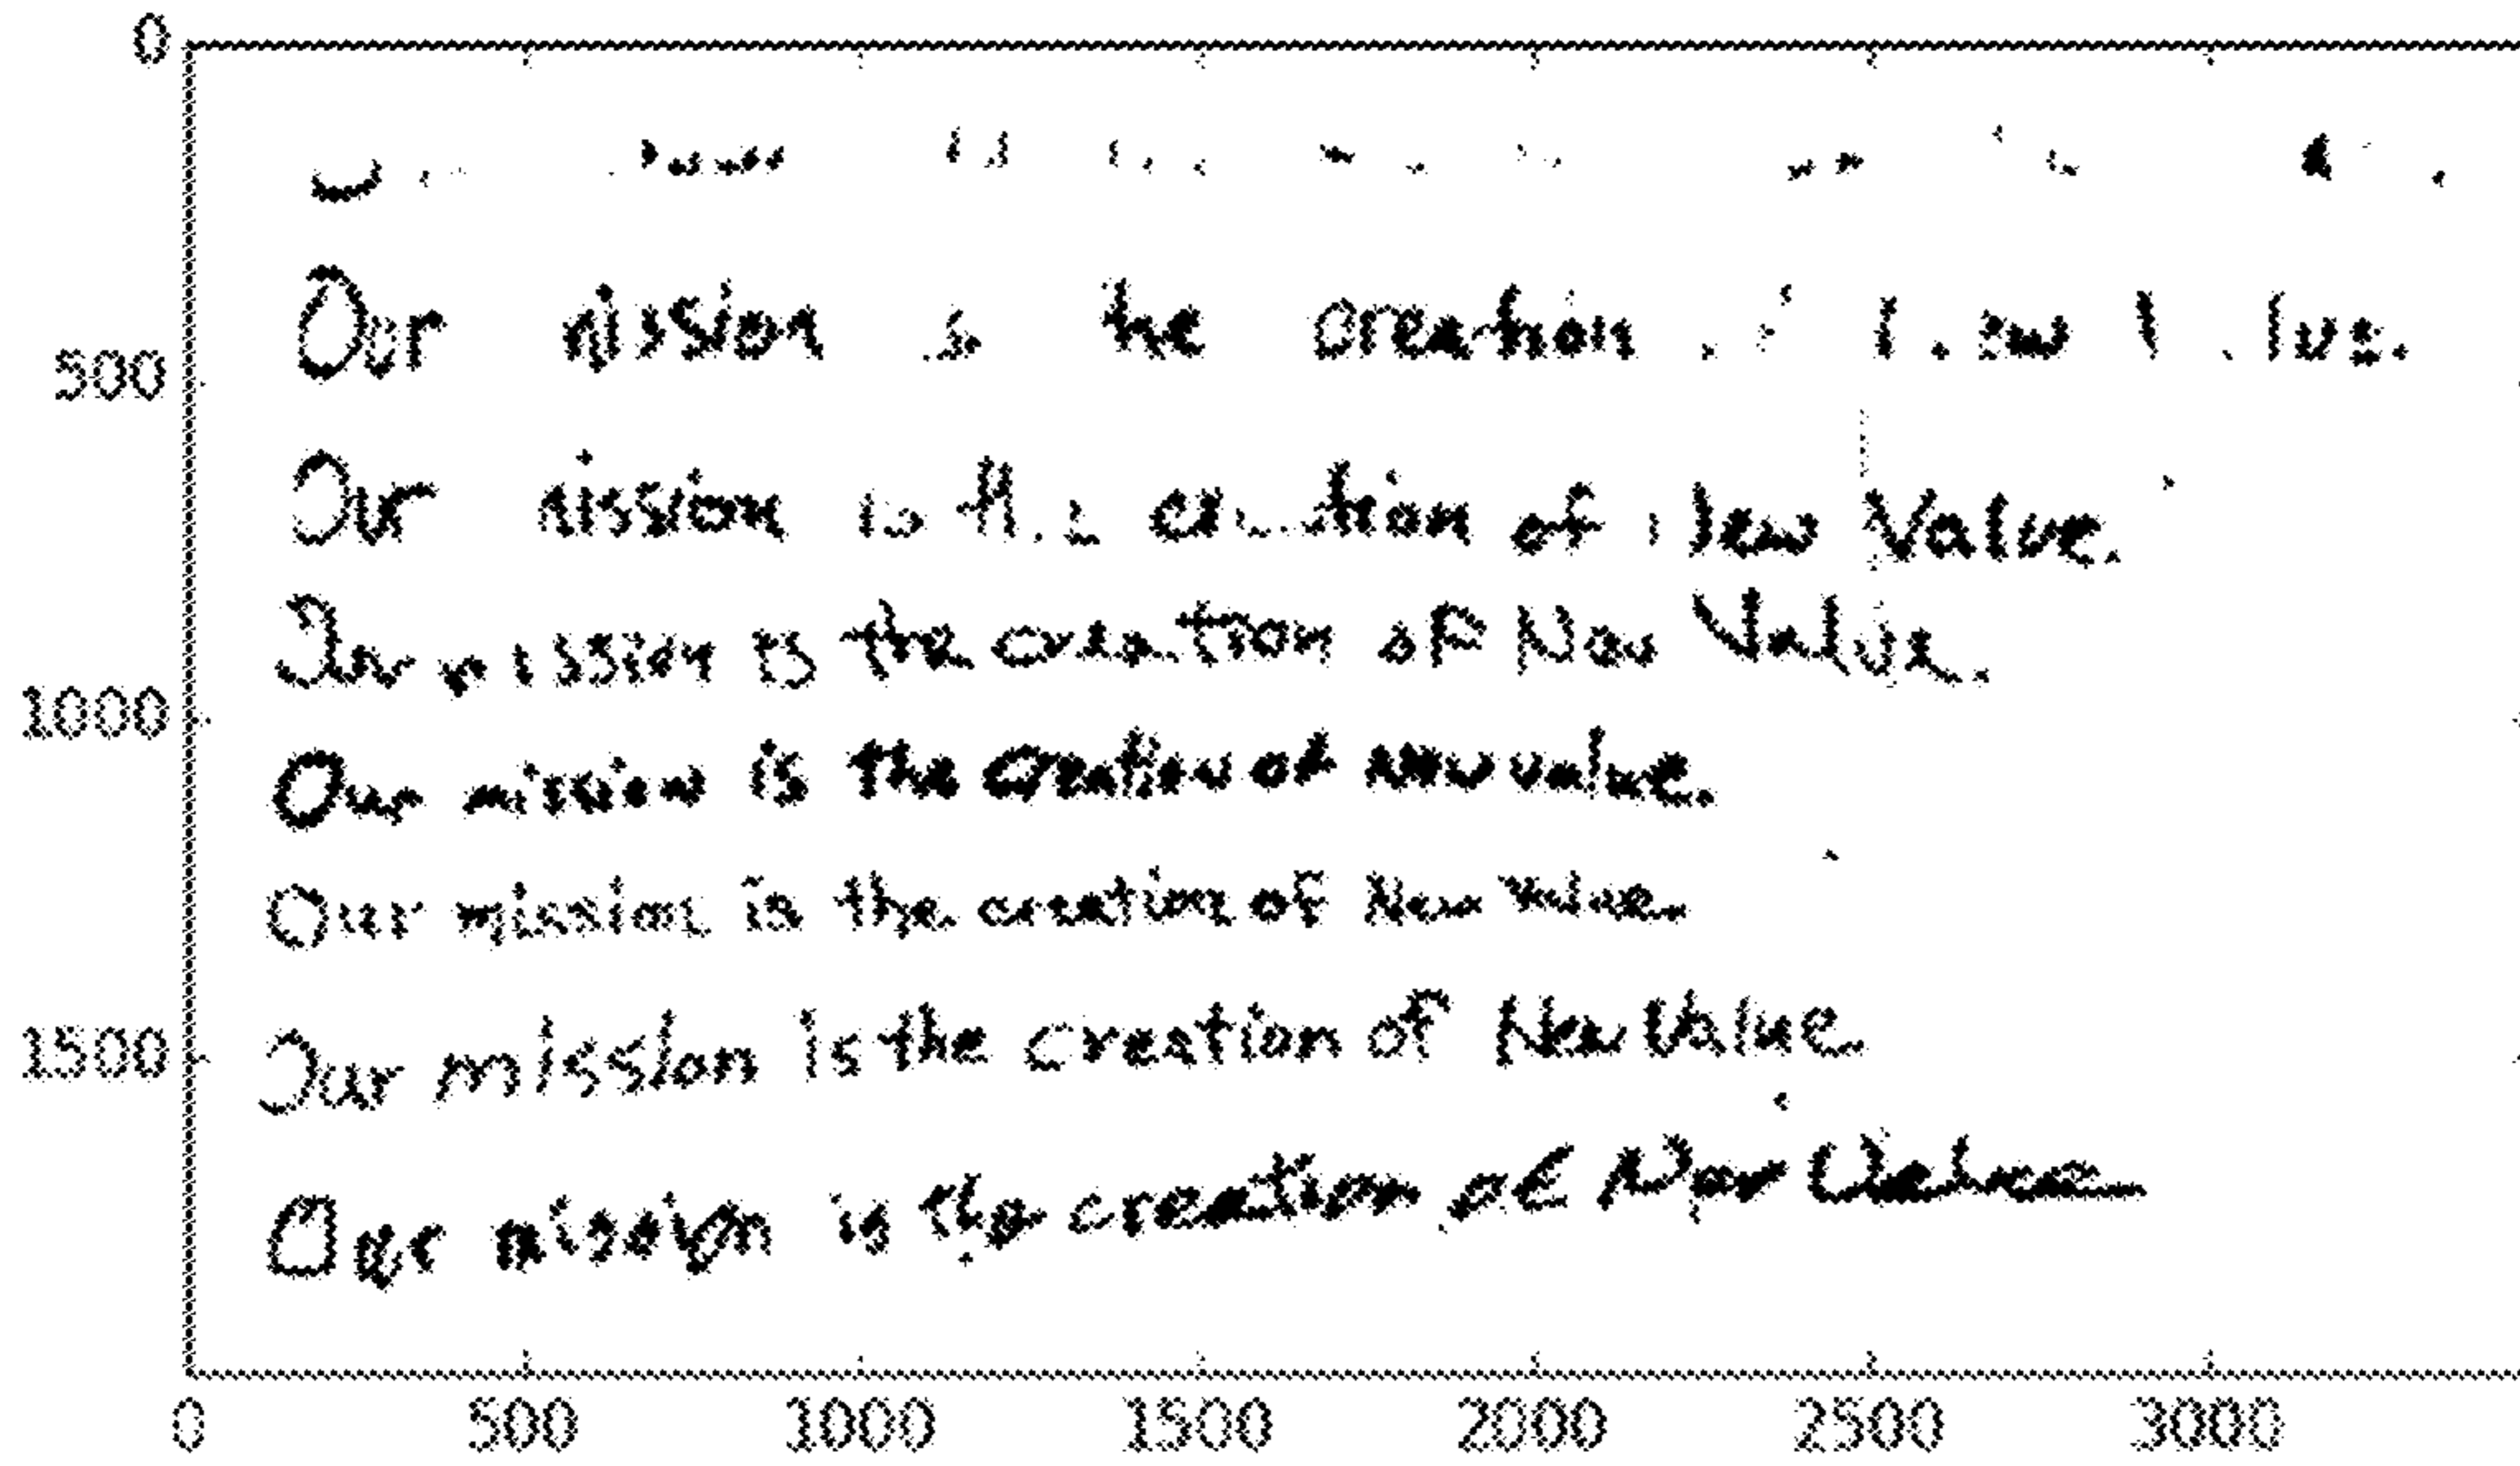 0
Our mission is the creation
500
Our mission is the creation of New Value.
Our mission is the creation of New Value.
1000
Our mission is the creation of new value.
Our mission is the creation of New Value
1500
Our mission is the creation of New Value
Our mission is the creation of New Value
0 500 1000 1500 2000 2500 3000